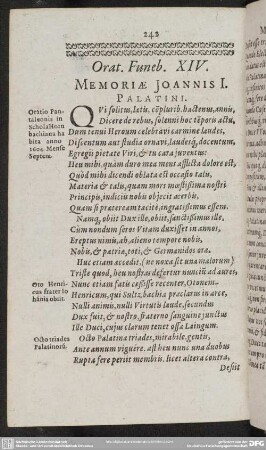 242
Orat. Funeb. XIV.
MEMORIÆ JOANNIS I.
PALATINI.
Oratio Pan-
taleonis in
Schola Horn
bachiana ha
bita anno
1604 Mense
Septem.
QVi solitus, lætū, cœpturiū, hactenus, annis,
Discere de rebus, solenni hoc tēporis actu,
Dum renui Heroum celebravi carmine laudes,
Discentum aut studia ornavi, laudesq́, docentum,
Egregii pietate Viri, & tu cara juventus:
Heu mihi, quàm duro mea mens afflicta dolore est,
Quòd mihi dicendi oblata est occasio talu,
Materia & talu, quam mors mæstissima nostri
Principis, indiciu nobis objecit acerbis,
Quam si præteream tacitè, ingratissimus essem.
Namq́, obiit Dux ille, obiit, sanctissimus ille,
Cùm nondum seros Vitam duxisset in annos,
Ereptus nimiu, ah, alieno tempore nobis,
Nobis, & patriæ, toti, & Germanidos oræ.
Huc etiam accedit, (ne noxa sit una malorum)
Triste quod, heu nostras defertur nunciū ad aures,
Otto Henri-
cus frater Io
hānis obiit.
Nunc etiam fatis cessisse recenter, Otonem-
Henricum, qui Sultzbachiu præclaru in arce,
Nulli animo, nulli Virtutis laude, secundus
Dux fuit, & nostro, fraterno sanguine junctus
Ille Duci, cujus clarum tenet ossa Laingum.
Octo triades
Palatinorū.
Octo Palatina triades, mirabile, gentis,
Ante annum viguêre. ast heu nunc una duobus
Rupta fere periit membris. licet altera contra,
Desiit